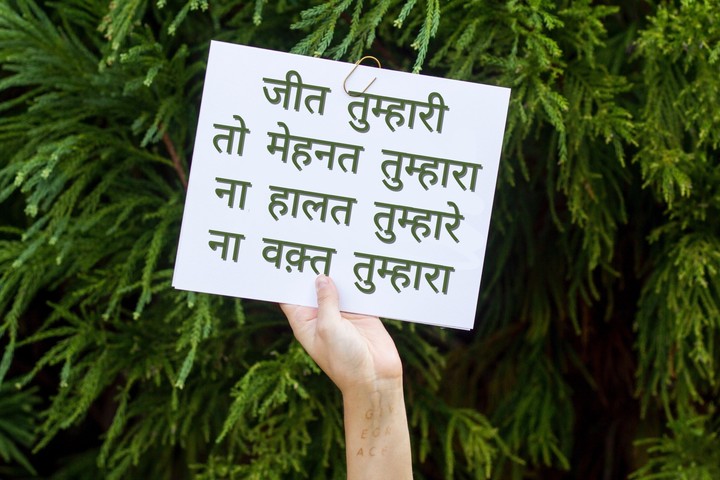 जीत तुम्हारी
तो मेहनत तुम्हारा
ना हालत तुम्हारे
ना वक़्त तुम्हारा